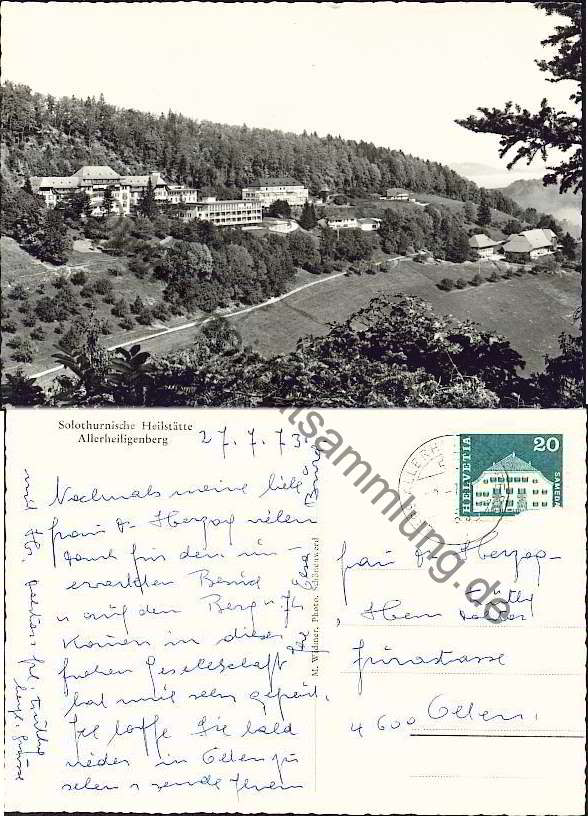 Solothurnische Heilstätte
Allerheiligenberg
27.7.73.
Nochmals meine liebe
Frau Dr Herzog vielen
Dank für den un-
erwarteten Besuch
auf den Berg. Ihr
Kommen in dieser
frohen Gesellschaft
hat mich sehr gefreut.
Ich hoffe Sie bald
wieder in Olten zu
sehen u sende Ihnen
und
Grüsse
M. Widmer, Photo, Schönenwerd
HELVETIA
20
SAMEDAN
Frau Dr Herzog-
Herrn Doktor
Jurastrasse
4600 Olten.
ansichtskartensammlung.de